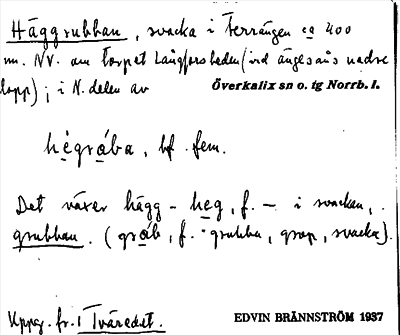 Häggrubban, svacka i terrängen ca 400
m. NV. om torpet Långforsheden (vid änglesåns nedre
lopp); i N. delen av Överkalix sn o. tg Norrb. l.
hégrába, bf. fem.
Det växer hägg - heg, f. - i svackan,
grubban. (gráb, f. "grubba, grop, svacka).
Uppg. fr. i Tväredet.
EDVIN BRÄNNSTRÖM 1937